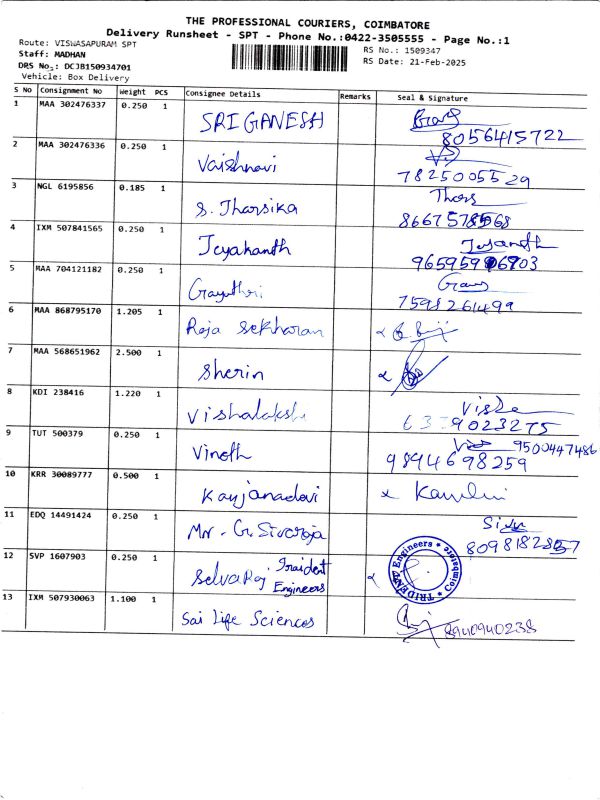 THE PROFESSIONAL COURIERS, COIMBATORE
Delivery Runsheet - SPT - Phone No.:0422-3505555 - Page No.:1
Route: VISWASAPURAM SPT
Staff: MADHAN
RS No.: 1509347
DRS No.: DCJB150934701
RS Date: 21-Feb-2025
Vehicle: Box Delivery
S No Consignment No Weight PCS Consignee Details Remarks Seal & Signature
1 MAA 302476337 0.250 1 SRI GANESH
8056415722
2 MAA 302476336 0.250 1 Vaishnavi
7825005529
3 NGL 6195856 0.185 1 S. Tharsika Thars
4 IXM 507841565 0.250 1 Jeyakanth Jeyanth
5 MAA 704121182 0.250 1 Gayathri
7598261499
6 MAA 868795170 1.205 1 Raja Sekharan
7 MAA 568651962 2.500 1 Sherin
8 KDI 238416 1.220 1 Vishalakshi
6379023275
9 TUT 500379 0.250 1 Vinoth 9500447486
9894698259
10 KRR 30089777 0.500 1 Kanjanadevi
11 EDQ 14491424 0.250 1 Mr. G. Sivaraja
12 SVP 1607903 0.250 1 Selvaraj Traident Engineers
TRIDENT Engineers * Coimbatore *
13 IXM 507930063 1.100 1 Sai Life Sciences
8940940238